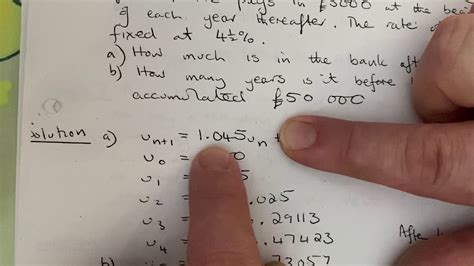 pays in £3000 at the be
of each year thereafter. The rate
fixed at 4½%.
a) How much is in the bank aft
b) How many years is it before
accumulated £50 000
Solution a) u_{n+1} = 1.045u_n +
u_0 = 0
u_1 = 5
u_2 = .025
u_3 = .29113
u_4 = .47423 After
b) .73057